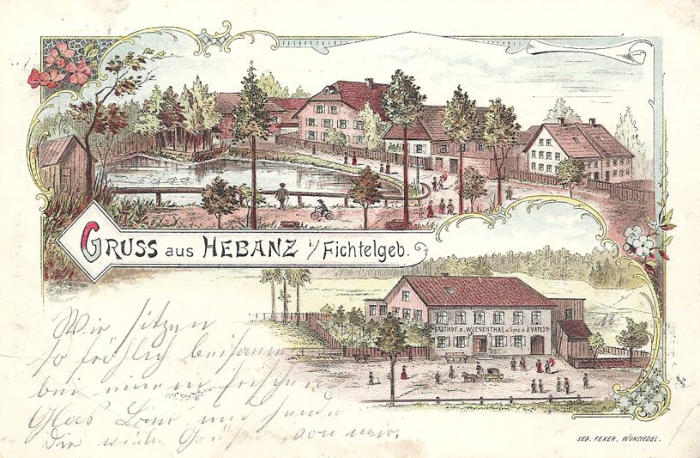 GRUSS aus HEBANZ i/Fichtelgeb.
GASTHOF z. WIESENTHAL
Wir sitzen
so fröhlich beisamen
bei einem frischen
Glas und sende
Dir viele Grüße von mir.
SEB. FEXER, WUNSIEDEL.